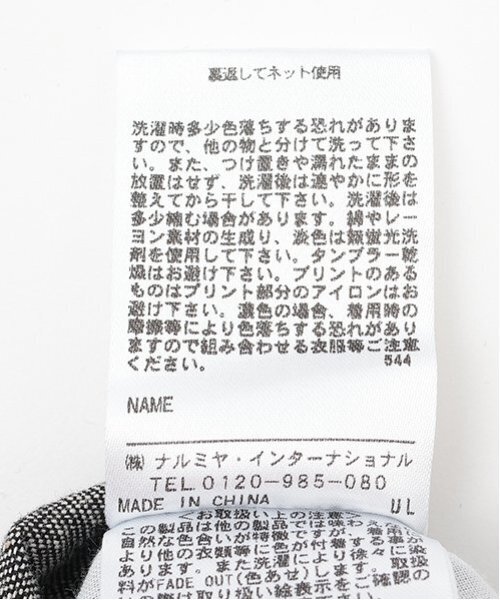 裏返してネット使用
洗濯時多少色落ちする恐れがありま
すので、他の物と分けて洗って下さ
い。また、つけ置きや濡れたままの
放置はせず、洗濯後は速やかに形を
整えてから干して下さい。洗濯後は
多少縮む場合があります。綿やレー
ヨン素材の生成り、淡色は無蛍光洗
剤を使用して下さい。タンブラー乾
燥はお避け下さい。プリントのある
ものはプリント部分のアイロンはお
避け下さい。濃色の場合、着用時の
摩擦等により色落ちする恐れがあり
ますので組み合わせる衣服等ご注意
ください。 544
NAME
(株) ナルミヤ・インターナショナル
TEL 0120-985-080
MADE IN CHINA UL
お取扱い上の注意
この製品は他の製品
自然な色合いが特徴ですが
より他の衣類等に色が付着する事
あります。また洗濯により徐々に染
料がFADE OUT(色あせ)します。取
の際は取り扱い絵表示をご確認の